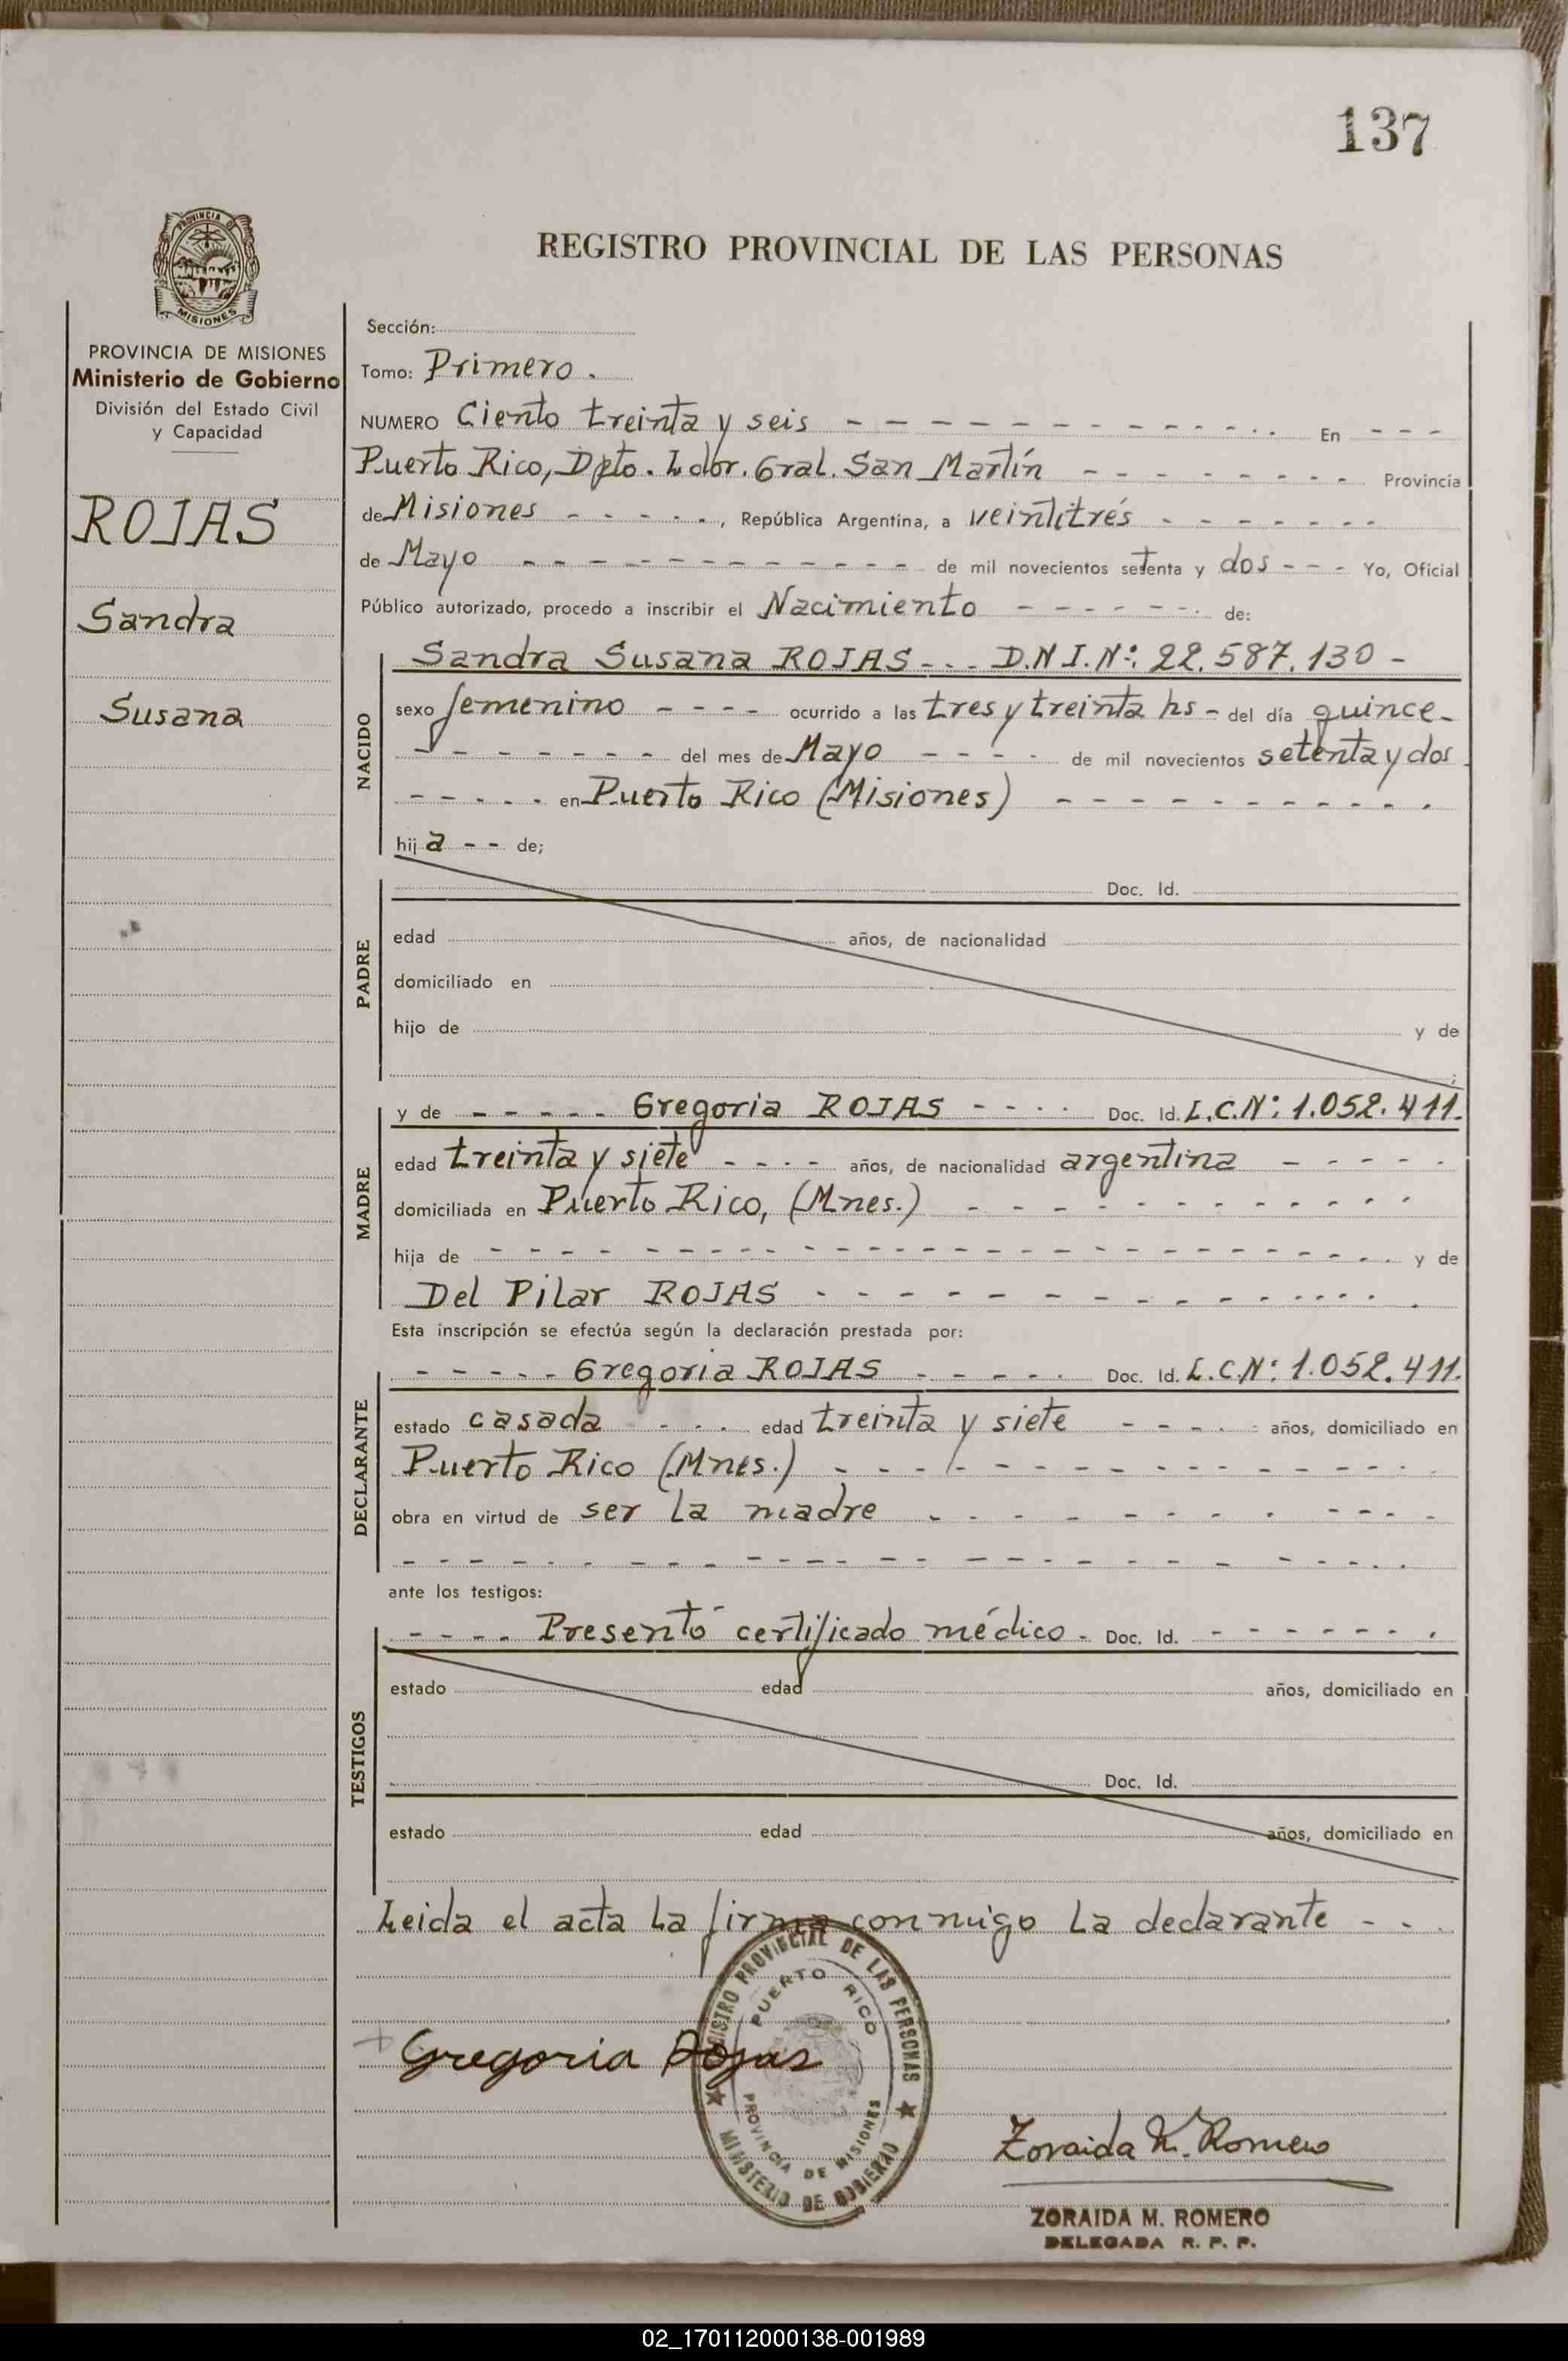 137
REGISTRO PROVINCIAL DE LAS PERSONAS
PROVINCIA DE MISIONES
PROVINCIA DE MISIONES
Ministerio de Gobierno
División del Estado Civil
y Capacidad
ROJAS
Sandra
Susana
Sección:
Tomo: Primero.
NUMERO Ciento treinta y seis - - - - - - - - - - - - En - - -
Puerto Rico, Dpto. Ldor. Gral. San Martín - - - - - - - Provincia
de Misiones - - - - - , República Argentina, a veintitrés - - - - - - -
de Mayo - - - - - - - - - - - de mil novecientos setenta y dos - - - Yo, Oficial
Público autorizado, procedo a inscribir el Nacimiento - - - - - - - de:
NACIDO
Sandra Susana ROJAS - - - D.N.I.Nº: 22.587.130 -
sexo femenino - - - - ocurrido a las tres y treinta hs - del día quince -
- - - - - - - del mes de Mayo - - - - de mil novecientos setenta y dos
- - - - - en Puerto Rico (Misiones) - - - - - - - - - - -
hij a - - de;
PADRE
Doc. Id.
edad años, de nacionalidad
domiciliado en
hijo de y de
MADRE
y de - - - - - Gregoria ROJAS - - - - Doc. Id. L.C.Nº: 1.052.411.
edad treinta y siete - - - - años, de nacionalidad argentina - - - - -
domiciliada en Puerto Rico, (Mnes.) - - - - - - - - - - -
hija de - - - - - - - - - - - - - - - - - - - - - - y de
Del Pilar ROJAS - - - - - - - - - - - - - -
Esta inscripción se efectúa según la declaración prestada por:
DECLARANTE
- - - - - Gregoria ROJAS - - - - - Doc. Id. L.C.Nº: 1.052.411.
estado casada - - - edad treinta y siete - - - - años, domiciliado en
Puerto Rico (Mnes.) - - - - - - - - - - - - - -
obra en virtud de ser la madre - - - - - - - - - - -
- - - - - - - - - - - - - - - - - - - - - - - -
ante los testigos:
TESTIGOS
- - - - Presentó certificado médico - Doc. Id. - - - - - - -
estado edad años, domiciliado en
Doc. Id.
estado edad años, domiciliado en
Leida el acta la firma conmigo la declarante - - -
REGISTRO PROVINCIAL DE LAS PERSONAS
PUERTO RICO
PROVINCIA DE MISIONES
MINISTERIO DE GOBIERNO
Gregoria Rojas
Zoraida M. Romero
ZORAIDA M. ROMERO
DELEGADA R. P. P.
02_170112000138-001989